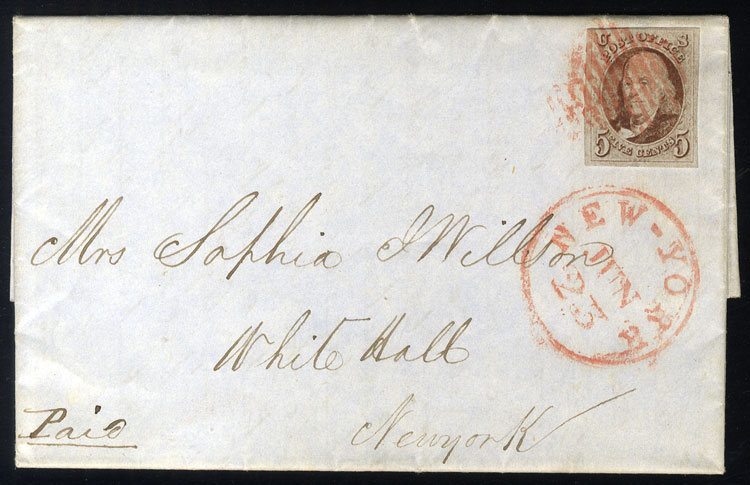 U S
POST OFFICE
5 FIVE CENTS 5
NEW-YORK
JUN
23
Mrs Sophia J Willson
White Hall
Paid
Newyork